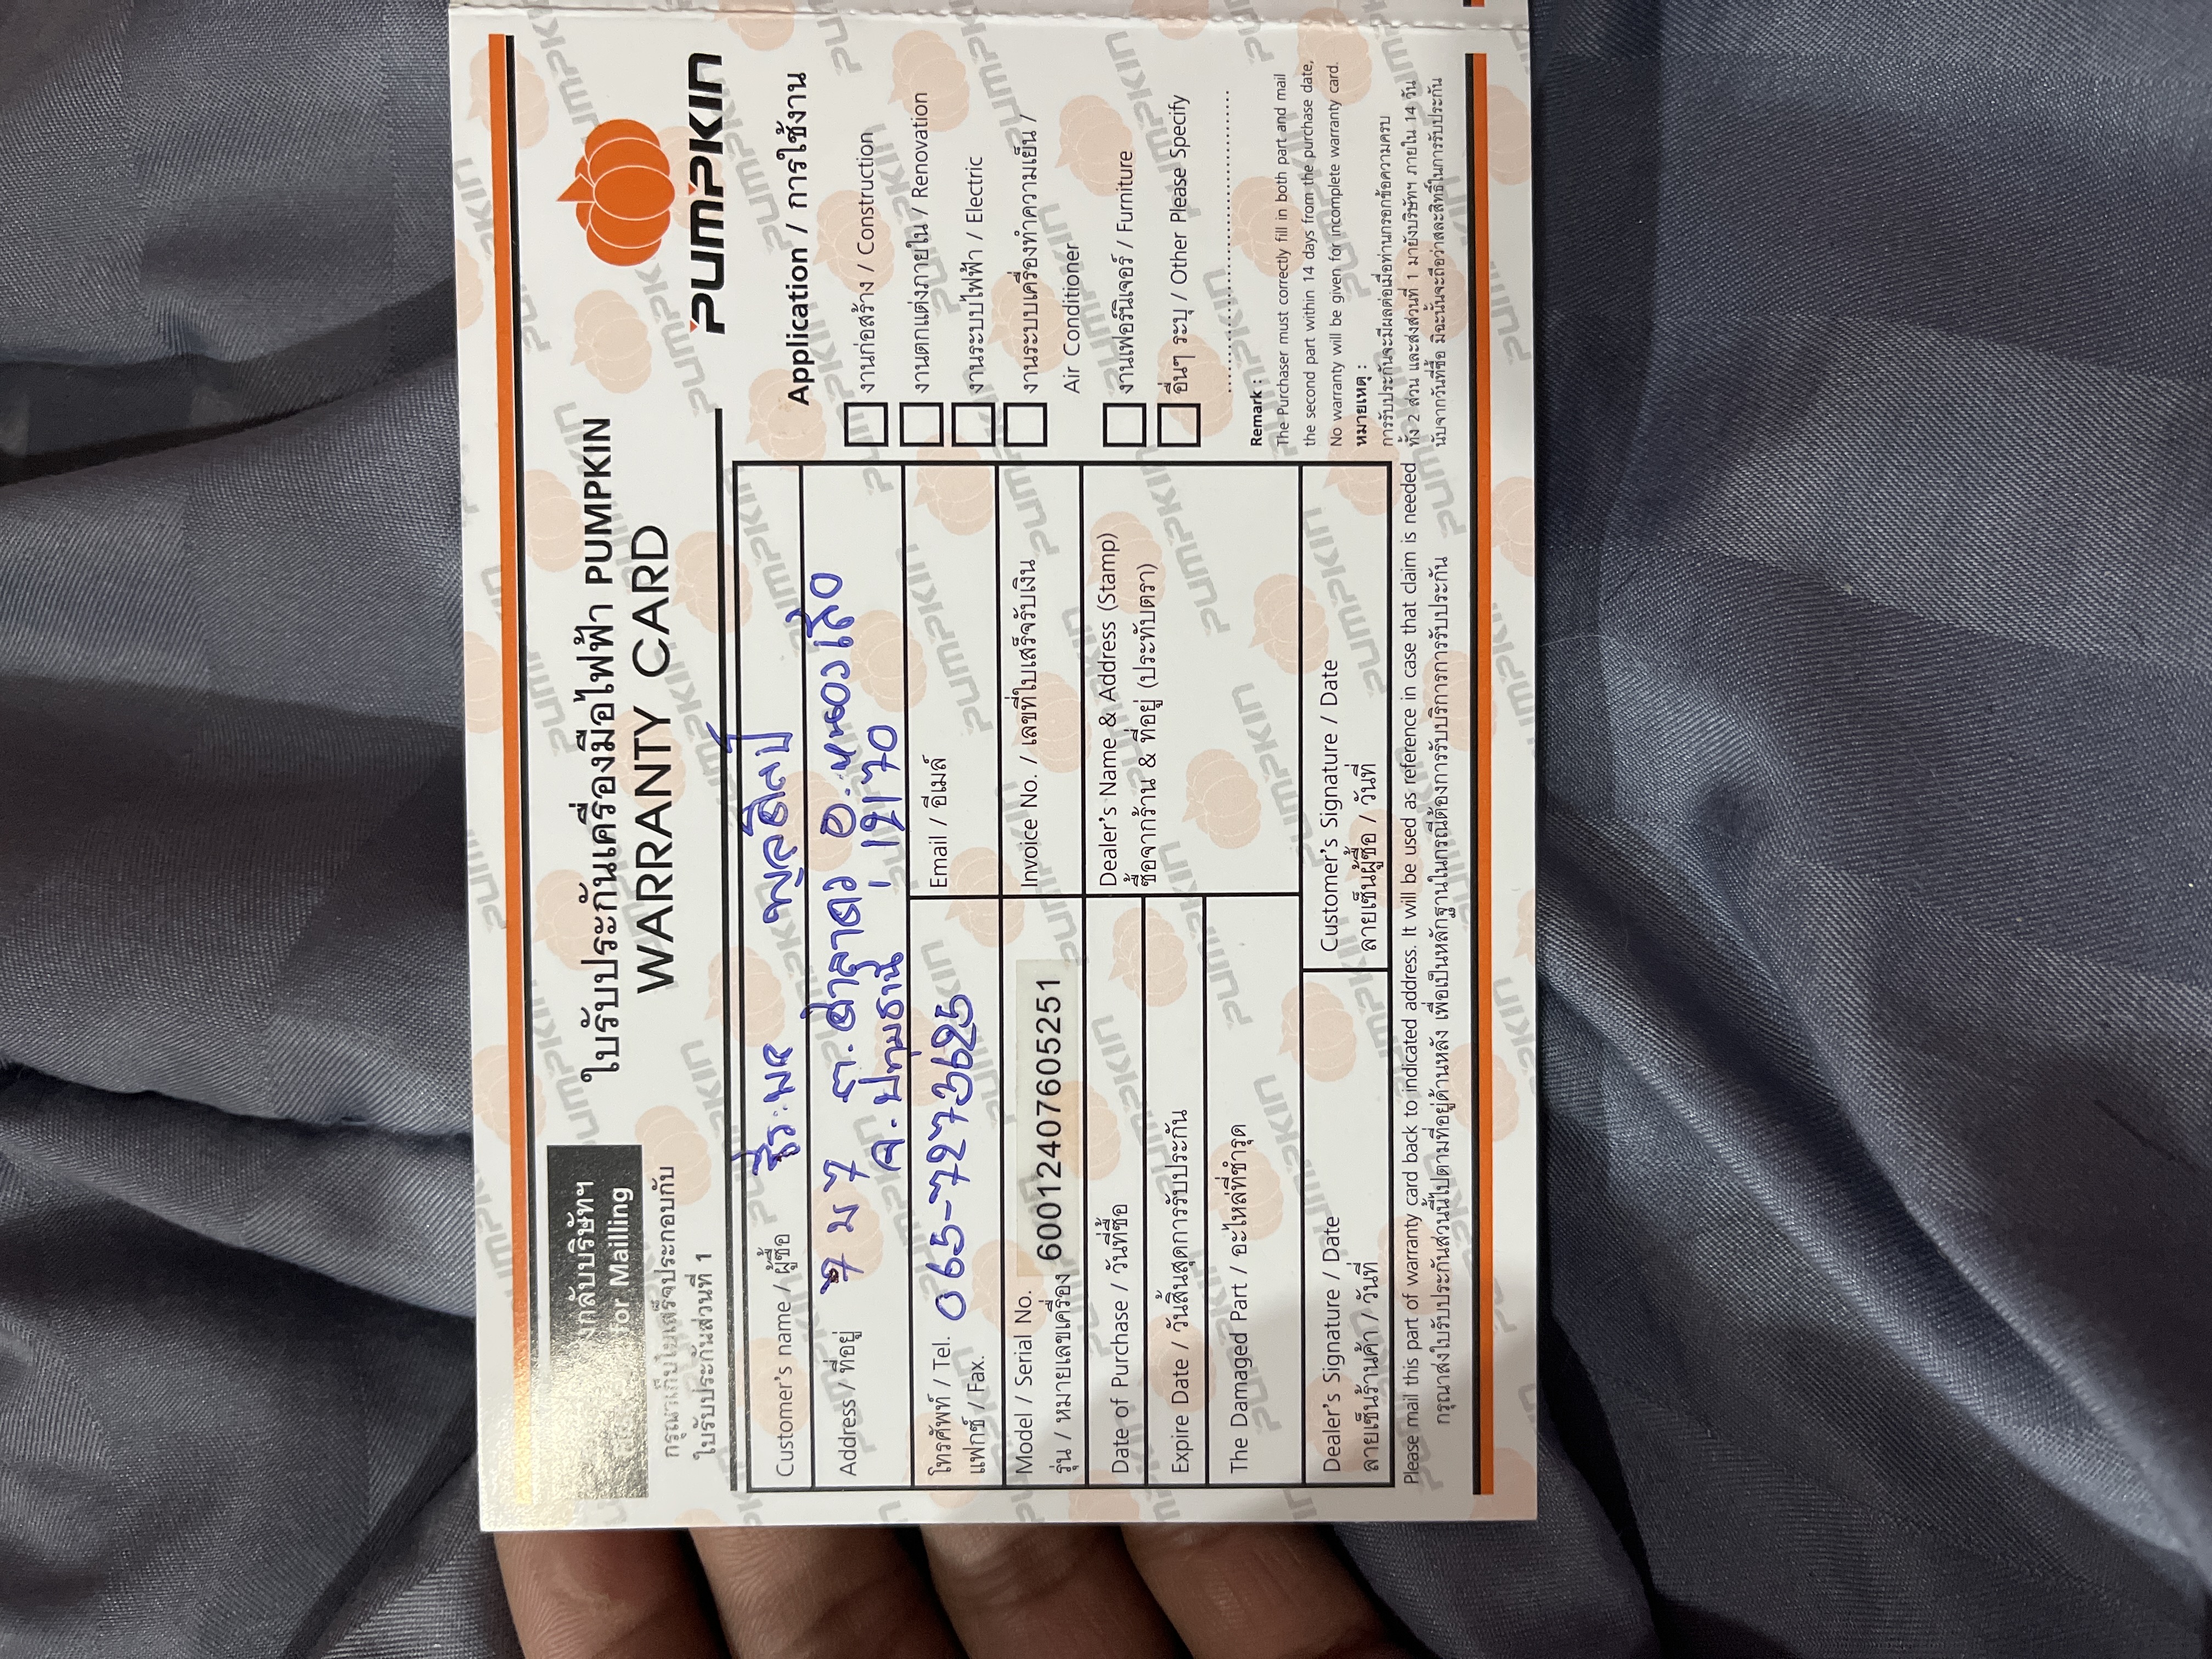 ใบรับประกันเครื่องมือไฟฟ้า PUMPKIN
WARRANTY CARD
PUMPKIN
งกลับบริษัทฯ
for Mailling
กรุณาเก็บใบเสร็จประกอบกับ
ใบรับประกันส่วนที่ 1
Customer's name / ผู้ซื้อ
Address / ที่อยู่ 7 ม 7 ต.ศาลาครุ อ.หนองเสือ
จ.ปทุมธานี 12170
โทรศัพท์ / Tel. 065-7273625
แฟกซ์ / Fax.
Email / อีเมล์
Model / Serial No.
รุ่น / หมายเลขเครื่อง 60012407605251
Invoice No. / เลขที่ใบเสร็จรับเงิน
Date of Purchase / วันที่ซื้อ
Dealer's Name & Address (Stamp)
ซื้อจากร้าน & ที่อยู่ (ประทับตรา)
Expire Date / วันสิ้นสุดการรับประกัน
The Damaged Part / อะไหล่ที่ชำรุด
Dealer's Signature / Date
ลายเซ็นร้านค้า / วันที่
Customer's Signature / Date
ลายเซ็นผู้ซื้อ / วันที่
Please mail this part of warranty card back to indicated address. It will be used as reference in case that claim is needed
กรุณาส่งใบรับประกันส่วนนี้ไปตามที่อยู่ด้านหลัง เพื่อเป็นหลักฐานในกรณีต้องการรับบริการการรับประกัน
Application / การใช้งาน
งานก่อสร้าง / Construction
งานตกแต่งภายใน / Renovation
งานระบบไฟฟ้า / Electric
งานระบบเครื่องทำความเย็น /
Air Conditioner
งานเฟอร์นิเจอร์ / Furniture
อื่นๆ ระบุ / Other Please Specify
Remark :
The Purchaser must correctly fill in both part and mail
the second part within 14 days from the purchase date,
No warranty will be given for incomplete warranty card.
หมายเหตุ :
การรับประกันจะมีผลต่อเมื่อท่านกรอกข้อความครบ
ทั้ง 2 ส่วน และส่งส่วนที่ 1 มายังบริษัทฯ ภายใน 14 วัน
นับจากวันที่ซื้อ มิฉะนั้นจะถือว่าสละสิทธิ์ในการรับประกัน